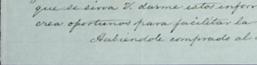 que se sirva V. darme estos infor
crea oportunos para facilitar la
Habiendole comprado al